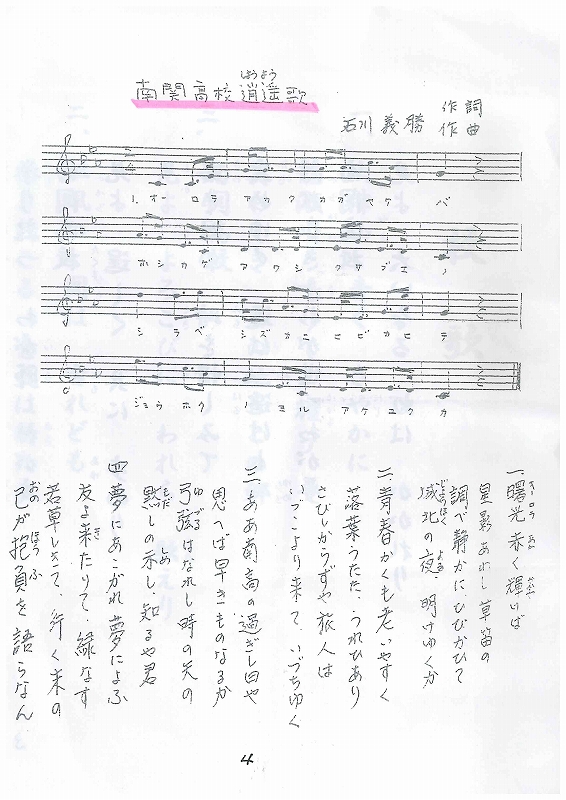 南関高校逍遥歌
しょうよう
石川義勝 作詞
作曲
1. オーロラ アカク カガ ヤケ バ
ホシカゲ アワシ クサブエ ノ
シラベ シズカニ ヒビカヒ テ
ジョウホク ノ ヨル アケ ユク カ
一、曙光赤く輝けば
星影あわし草笛の
調べ静かに、ひびかひて
城北の夜、明けゆくか
二、青春かくも老いやすく
落葉うたた、うれひあり
さびしからずや旅人は
いづこより来て、いづちゆく
三、ああ南高の過ぎし日や
思へば早きものなるか
弓弦はなれし時の矢の
黙しの示し、知るや君
四、夢にあこがれ夢によふ
友よ来たりて、緑なす
若草しきて、行く末の
己が抱負を語らなん
4